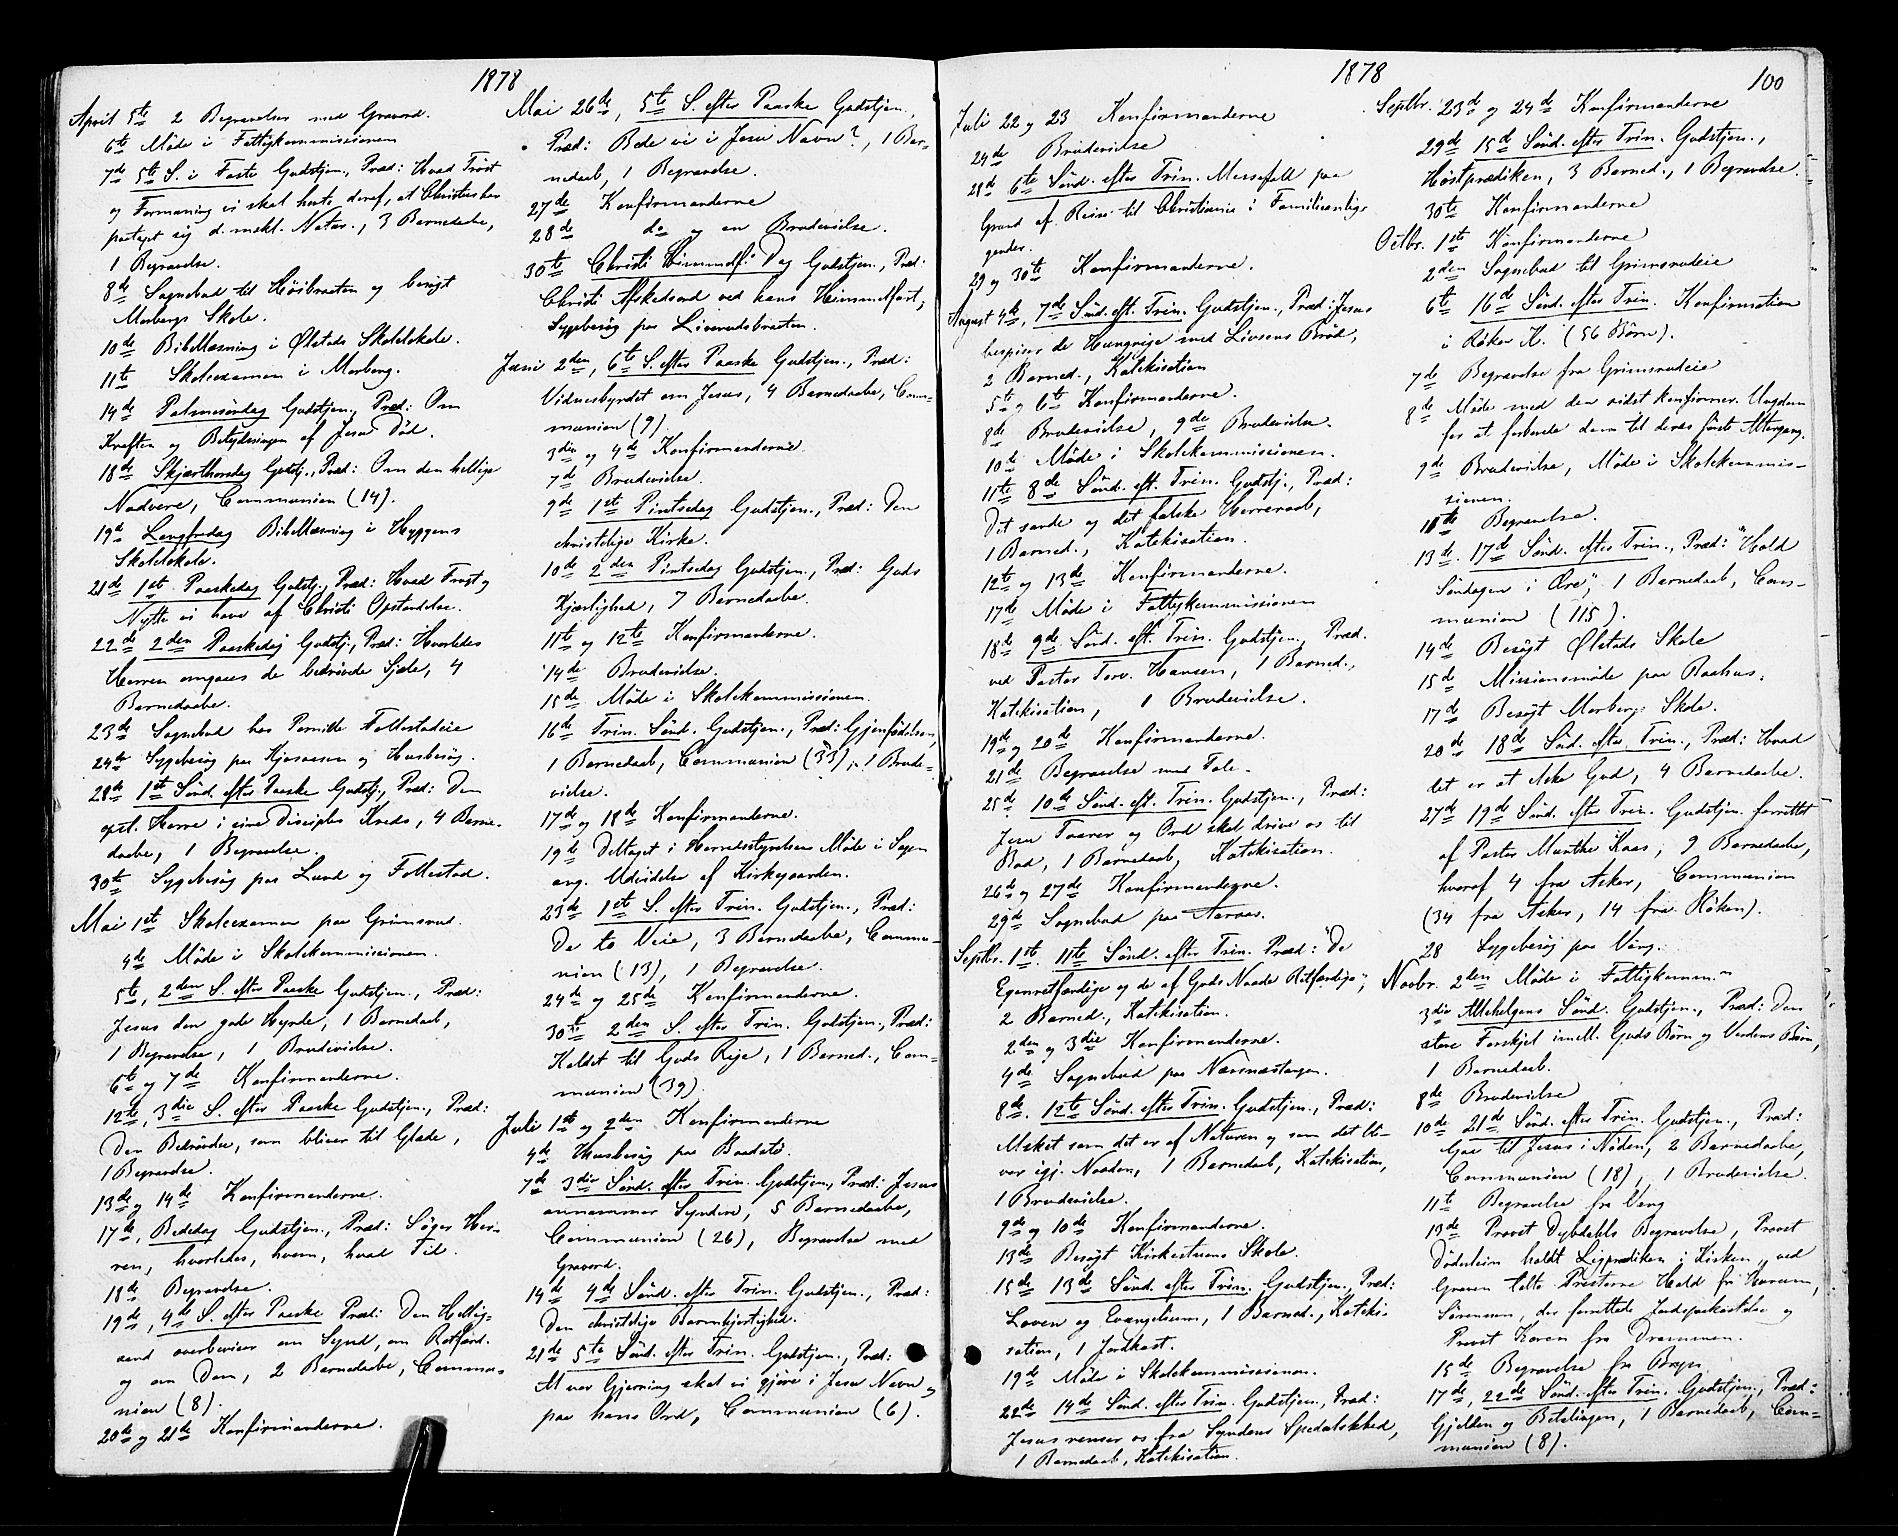 1878
April 5te 2 Begravelser med Gravord.
6te Møde i Fattigkommissionen
7de 5te S. i Faste Gudstjen., Præd: Hvad Trøst
og Formaning vi skal hente deraf, at Christus har
paataget sig d. mskl. Natur., 3 Barnedaabe,
1 Begravelse.
8de Sognebud til Høibraaten og besøgt
Morbergs Skole.
10de Bibellæsning i Ølstads Skolelokale.
11te Skoleexamen i Morberg.
14de Palmesøndag Gudstjen., Præd: Om
Kraften og Betydningen af Jesu Død.
18de Skjærthorsdag Gudstj., Præd: Om den hellige
Nadvere, Communion (14).
19de Langfredag Bibellæsning i Hyggens
Skolelokale.
21de 1ste Paaskedag Gudstj., Præd: Hvad Trøst og
Nytte vi have af Christi Opstandelse.
22de 2den Paaskedag Gudstj., Præd: Hvorledes
Herren omgaaes de bedrøvede Sjæle, 4
Barnedaabe.
23de Sognebud hos Pernille Follestadeie
24de Sygebesøg paa Kjosaasen og Husbesøg.
28de 1ste Sønd. efter Paaske Gudstj., Præd: Den
opst. Herre i sine Disciples Kreds, 4 Barne-
daabe, 1 Begravelse.
30te Sygebesøg paa Lund og Follestad.
Mai 1ste Skoleexamen paa Grimsrud.
4de Møde i Skolekommissionen.
5te, 2den S. efter Paaske Gudstjen., Præd:
Jesus den gode Hyrde, 1 Barnedaab,
1 Begravelse, 1 Brudevielse.
6te og 7de Konfirmanderne.
12te, 3die S. efter Paaske Gudstjen., Præd:
Den Bedrøvelse, som bliver til Glæde,
1 Begravelse.
13de og 14de Konfirmanderne.
17de, Bededag Gudstjen., Præd: Søger Her-
ren, hvorledes, hvem, hvad Tid.
18de Begravelse.
19de, 4de S. efter Paaske Præd: Den Hellig-
aand overbeviser om Synd, om Retfærd.
og om Dom, 2 Barnedaabe, Commu-
nion (8).
20de og 21de Konfirmanderne.
Mai 26de, 5te S. efter Paaske Gudstjen.,
Præd: Bede vi i Jesu Navn?, 1 Bar-
nedaab, 1 Begravelse.
27de Konfirmanderne
28de do og en Brudevielse.
30te Christi Himmelf. Dag Gudstjen., Præd:
Christi Afskedsord ved hans Himmelfart,
Sygebesøg paa Liverudsbraaten.
Juni 2den, 6te S. efter Paaske Gudstjen., Præd:
Vidnesbyrdet om Jesus, 4 Barnedaabe, Com-
munion (9).
3die og 4de Konfirmanderne.
7de Brudevielse.
9de 1ste Pintsedag Gudstjen., Præd: Den
christelige Kirke.
10de 2den Pintsedag Gudstjen., Præd: Guds
Kjærlighed, 7 Barnedaabe.
11te og 12te Konfirmanderne.
14de Brudevielse.
15de Møde i Skolekommissionen.
16de Trin. Sønd. Gudstjen., Præd: Gjenfødelsen,
1 Barnedaab, Communion (33), 1 Brude-
vielse.
17de og 18de Konfirmanderne.
19de Deltaget i Herredsstyrelsens Møde i Sagen
ang. Udvidelse af Kirkegaarden.
23de 1ste S. efter Trin. Gudstjen., Præd:
De to Veie, 3 Barnedaabe, Commu-
nion (13), 1 Begravelse.
24de og 25de Konfirmanderne.
30te 2den S. efter Trin. Gudstjen., Præd:
Kaldet til Guds Rige, 1 Barned., Com-
munion (39).
Juli 1ste og 2den Konfirmanderne
4de Husbesøg paa Baadstø.
7de 3die Sønd. efter Trin. Gudstjen., Præd: Jesus
annammer Syndere, 5 Barnedaabe,
Communion (26), Begravelse med
Gravord.
14de 4de Sønd. efter Trin. Gudstjen., Præd:
Den christelige Barmhjertighed.
21de 5te Sønd. efter Trin. Gudstjen., Præd:
Al vor Gjerning skal vi gjøre i Jesu Navn og
paa hans Ord, Communion (6).
1878
100
Juli 22 og 23 Konfirmanderne
24de Brudevielse
28de 6te Sønd. efter Trin. Messefald paa
Grund af Reise til Christiania i Familieanlig-
gender.
29 og 30te Konfirmanderne.
August 4de, 7de Sønd. eft. Trin. Gudstjen., Præd: Jesus
bespiser de Hungrige med Livsens Brød,
2 Barned., Katekisation
5te og 6te Konfirmanderne.
8de Brudevielse, 9de Brudevielse.
10de Møde i Skolekommissionen.
11te 8de Sønd. eft. Trin. Gudstj., Præd:
Det sande og det falske Herreraab,
1 Barned., Katekisation.
12te og 13de Konfirmanderne.
17de Møde i Fattigkommissionen
18de 9de Sønd. eft. Trin. Gudstjen., Præd.
ved Pastor Terv. Hansen, 1 Barned.,
Katekisation, 1 Brudevielse.
19de og 20de Konfirmanderne.
21de Begravelse med Tale.
25de 10de Sønd. eft. Trin. Gudstjen., Præd:
Jesu Taarer og Ord skal drive os til
Bod, 1 Barnedaab, Katekisation.
26de og 27de Konfirmanderne.
29de Sognebud paa Aaraas.
Septbr. 1ste. 11te Sønd. efter Trin. Præd: "De
Egenretfærdige og de af Guds Naade Retfærdige",
2 Barned., Katekisation.
2den og 3die Konfirmanderne.
4de Sognebud paa Nærsnæstangen.
8de. 12te Sønd. efter Trin. Gudstjen., Præd:
Msket som det er af Naturen og som det bli-
ver igj. Naaden, 1 Barnedaab, Katekisation,
1 Brudevielse.
9de og 10de Konfirmanderne.
13de Besøgt Kirkestuens Skole.
15de 13de Sønd. efter Trin. Gudstjen., Præd:
Loven og Evangelium, 1 Barned., Kateki-
sation, 1 Jordkast.
19de Møde i Skolekommissionen.
22de 14de Sønd. efter Trin. Gudstjen., Præd:
Jesus renser os fra Syndens Spedalskhed,
1 Barnedaab, Katekisation.
Septbr. 23de og 24de Konfirmanderne
29de 15de Sønd. efter Trin. Gudstjen.,
Høstprædiken, 3 Barned., 1 Begravelse.
30te Konfirmanderne
Octbr. 1ste Konfirmanderne
2den Sognebud til Grimsrudeie
6te 16de Sønd. efter Trin. Konfirmation
i Røken K. (56 Børn).
7de Begravelse fra Grimsrudeie
8de Møde med den sidst konfirmer. Ungdom
for at forberede dem til deres første Altergang.
9de Brudevielse, Møde i Skolekommis-
sionen.
11te Begravelse.
13de. 17de Sønd. efter Trin., Præd: "Hold
Søndagen i Ære", 1 Barnedaab, Com-
munion (115).
14de Besøgt Ølstads Skole
15de Missionsmøde paa Baahus.
17de Besøgt Morbergs Skole.
20de 18de Sønd. efter Trin., Præd: Hvad
det er at elske Gud, 4 Barnedaabe.
27de 19de Sønd. efter Trin. Gudstjen. forrettet
af Pastor Munthe Kaas, 9 Barnedaabe,
hvoraf 4 fra Asker, Communion
(34 fra Asker, 14 fra Røken).
28 Sygebesøg paa Vang.
Novbr. 2den Møde i Fattigkomm.
3die Allehelgens Sønd. Gudstjen., Præd: Den
store Forskjel imell. Guds Børn og Verdens Børn,
1 Barnedaab.
8de Brudevielse
10de 21de Sønd. efter Trin. Gudstjen., Præd:
Gaa til Jesus i Nøden, 2 Barnedaabe,
Communion (18), 1 Brudevielse.
11te Begravelse fra Vang
13de Provst Dybdahls Begravelse, Provst
Døderlein holdt Ligprædiken i Kirken, ved
Graven talte Presterne Hald fra Hurum,
Sørensen, der forrettede Jordspaakastelse og
Provst Koren fra Drammen.
15de Begravelse fra Bryn
17de, 22de Sønd. efter Trin. Gudstjen., Præd:
Gjælden og Betalingen, 1 Barnedaab, Com-
munion (8).